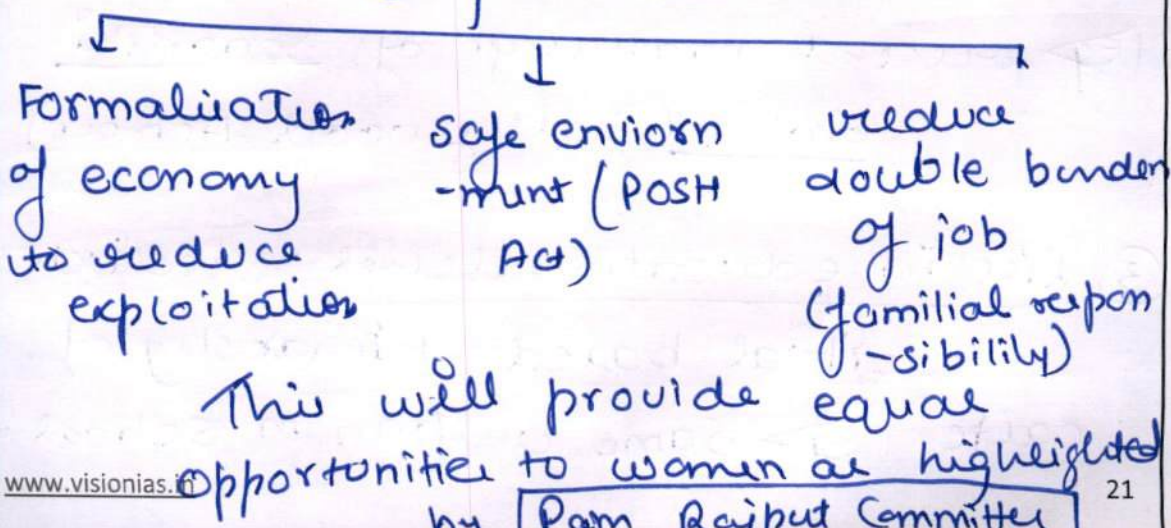 Formalization
of economy
to reduce
exploitation
safe enviorn
-ment (POSH
Act)
reduce
double burden
of job
(familial respon
-sibility)
This will provide equal
opportunities to women as highlighted
www.visionias.in
21
by Pam Rajput Committee